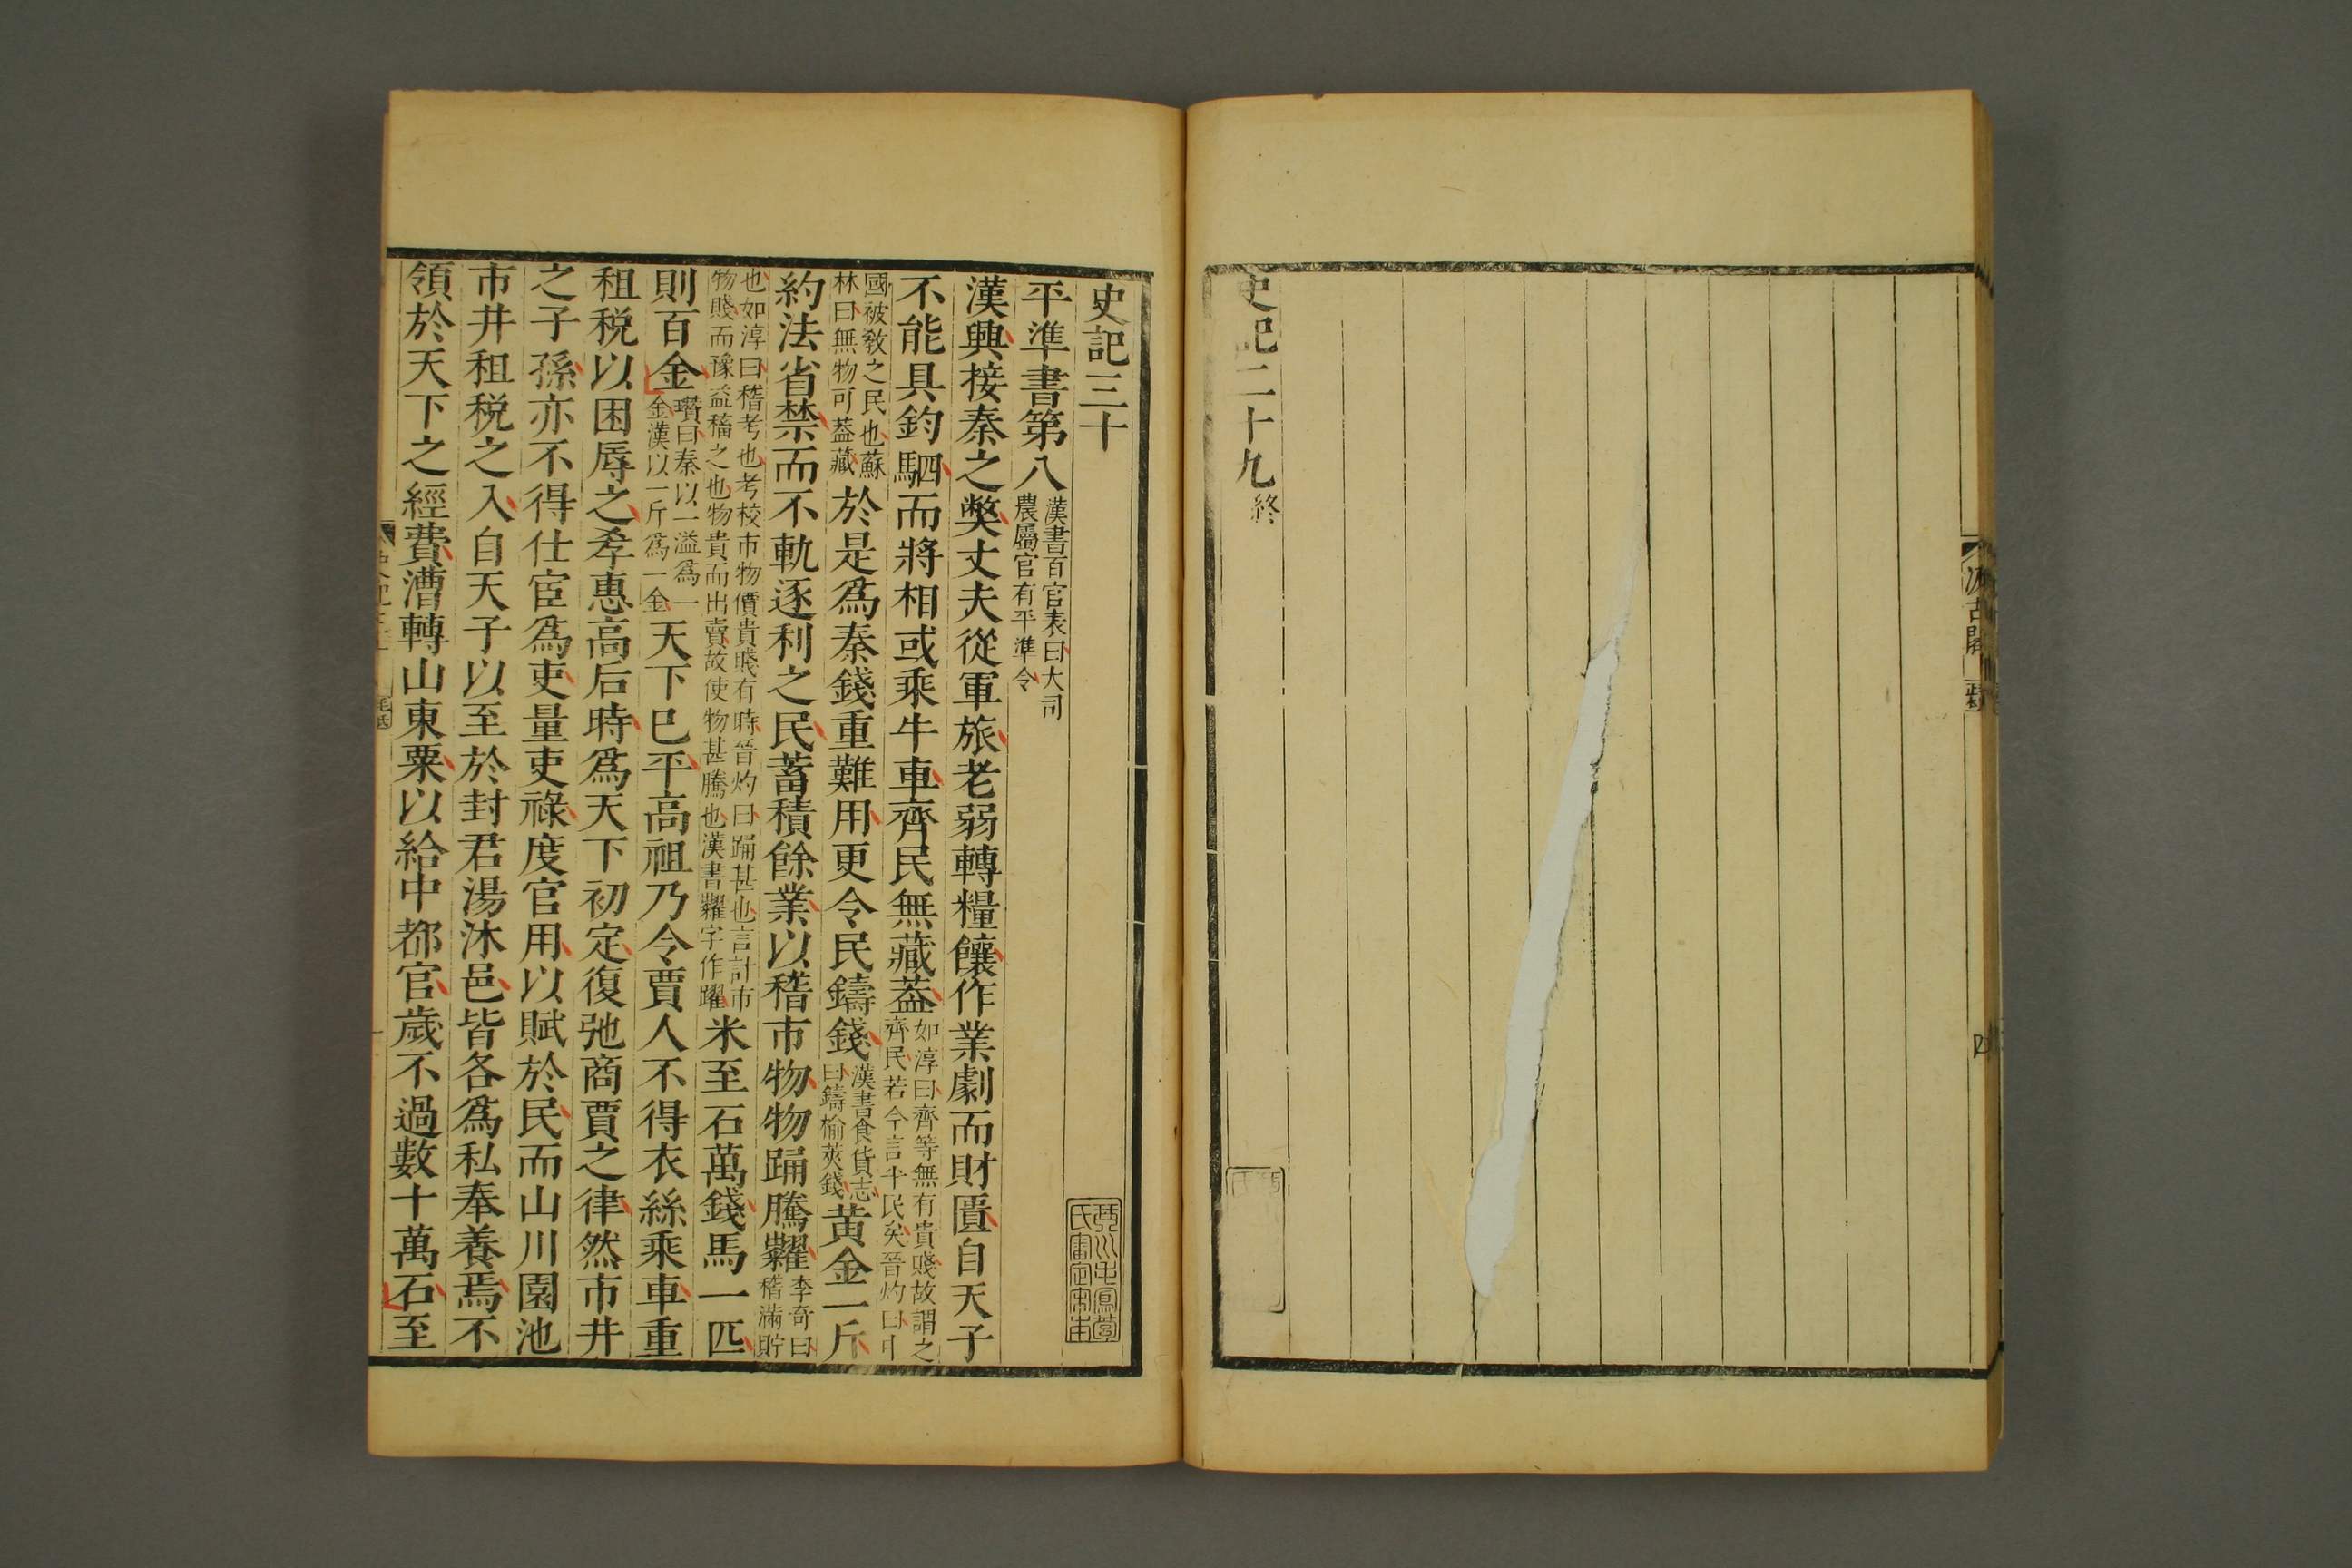 史記二十九終
汲古閣
史記三十
平準書第八漢書百官表曰大司農屬官有平準令
漢興接秦之獘丈夫從軍旅老弱轉糧饟作業劇而財匱自天子
不能具鈞駟而將相或乘牛車齊民無藏葢如淳曰齊等無有貴賤故謂之齊民若今言平民矣晉灼曰中
國被敎之民也蘇林曰無物可葢藏於是爲秦錢重難用更令民鑄錢漢書食貨志曰鑄榆莢錢黃金一斤
約法省禁而不軌逐利之民蓄積餘業以稽市物物踊騰糶李奇曰稽滿貯
也如淳曰稽考也考校市物價貴賤有時晉灼曰踊甚也言計市物賤而豫益稸之也物貴而出賣故使物甚騰也漢書糶字作躍米至石萬錢馬一匹
則百金瓚曰秦以一溢爲一金漢以一斤爲一金天下已平高祖乃令賈人不得衣絲乘車重
租稅以困辱之孝惠高后時爲天下初定復弛商賈之律然市井
之子孫亦不得仕宦爲吏量吏祿度官用以賦於民而山川園池
市井租稅之入自天子以至於封君湯沐邑皆各爲私奉養焉不
領於天下之經費漕轉山東粟以給中都官歲不過數十萬石至